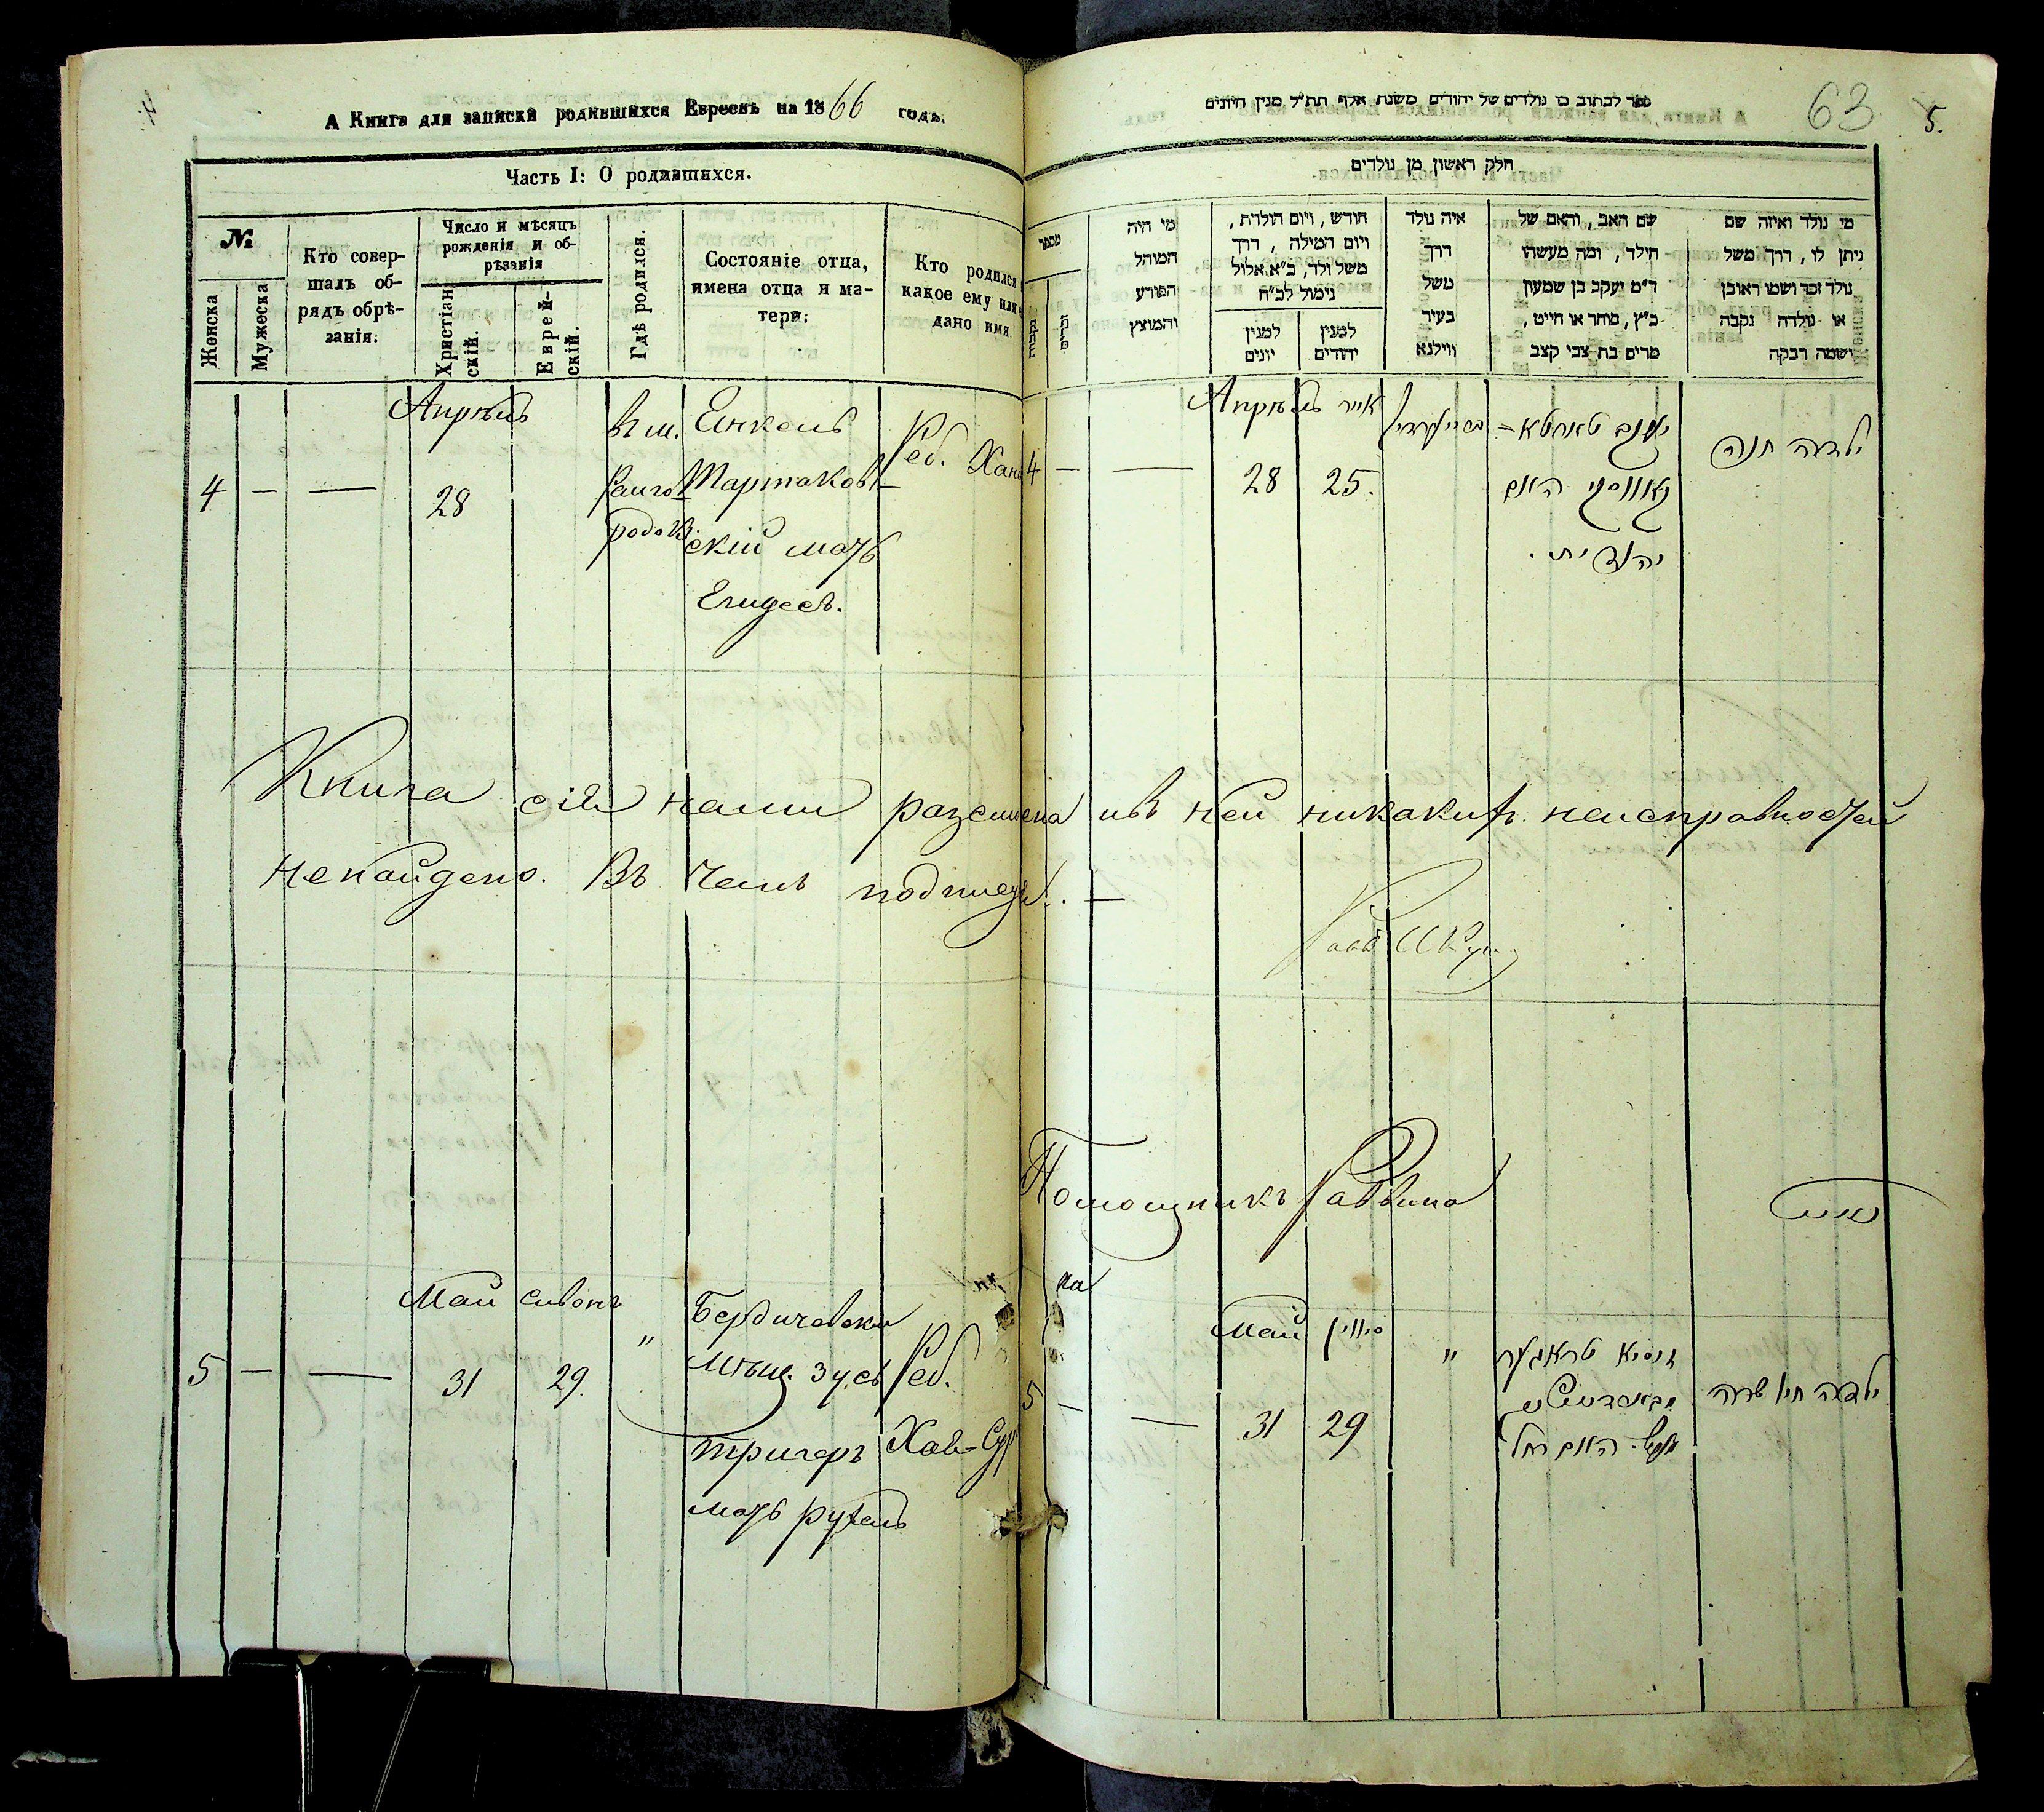 А Книга для записки родившихся Евреевъ на 1866 годъ.
Часть I: О родившихся.
№
Женска
Мужеска
Кто совер-
шалъ об-
рядъ обрѣ-
занія:
Число и мѣсяцъ
рожденія и об-
рѣзанія
Христіан
скій.
Еврей-
скій.
Гдѣ родился.
Состояніе отца,
имена отца и ма-
тери:
Кто родился
какое ему или
дано имя.
Апрѣль
4 — — 28
въ м.
родокъ
Янкель
Тартаков-
скій мать
Реб. Хана
Книга сія нами разсмотрена и въ ней никакихъ неисправностей
ненайдено. Въ чемъ подписуе. —
Помощникъ Раввина
Май сивонъ
5 — — 31 29. "
Бердичевски
мѣщ. Зусь
тригеръ
мать Рухель
Реб.
Хая-Сур
ספר לכתוב בו נולדים של יהודים משנת אלף תת״ל מנין היונים
63 5.
חלק ראשון מן נולדים
מספר
נקבות
זכרים
מי היה
המוהל
הפורע
והמוצץ
חודש, ויום הולדת,
ויום המילה, דרך
משל ולד, כ״א אלול
נימול לכ״ח
למנין
יונים
למנין
יהודים
איה נולד
דרך
משל
בעיר
ווילנא
שם האב, והאם של
הילד, ומה מעשהו
ד״מ יעקב בן שמעון
כ״ץ, סוחר או חייט,
מרים בת צבי קצב
מי נולד ואיזה שם
ניתן לו, דרך משל
נולד זכר ושמו ראובן
או נולדה נקבה
ושמה רבקה
Апрѣль אייר
4 — — 28 25.
יענקל טארטא-
קאווסקי האם
יהודית.
ילדה חנה
Май סיוון
5 — — 31 29 "
זיסיא טראגער
האם רחל
ילדה חיי שרה